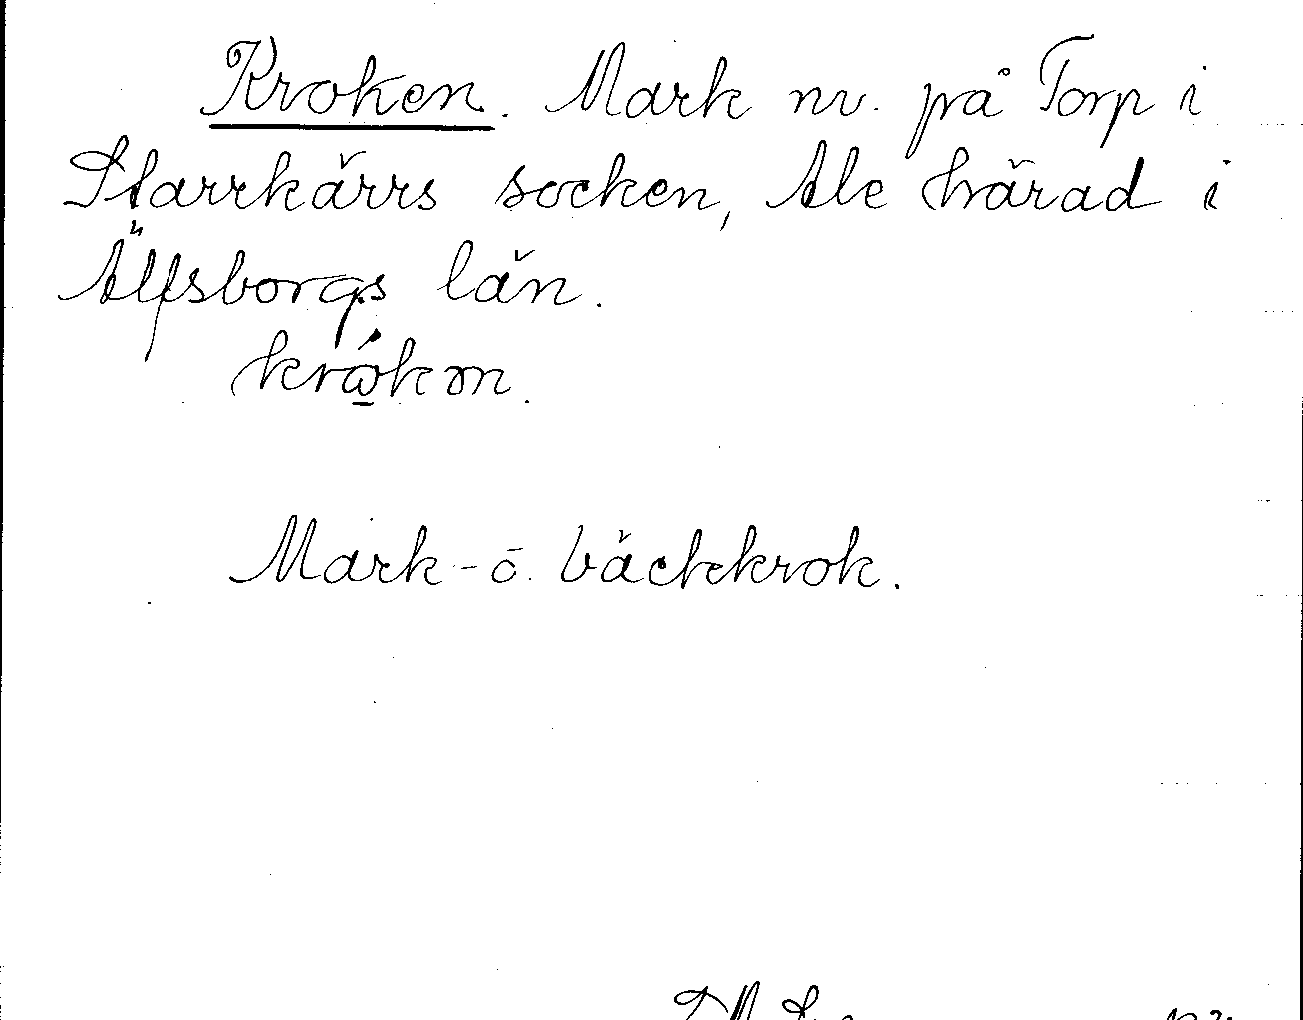 Kroken. Mark nv. på Torp i
Starrkärrs socken, Ale härad i
Älfsborgs län.
Mark- o. bäckkrok.